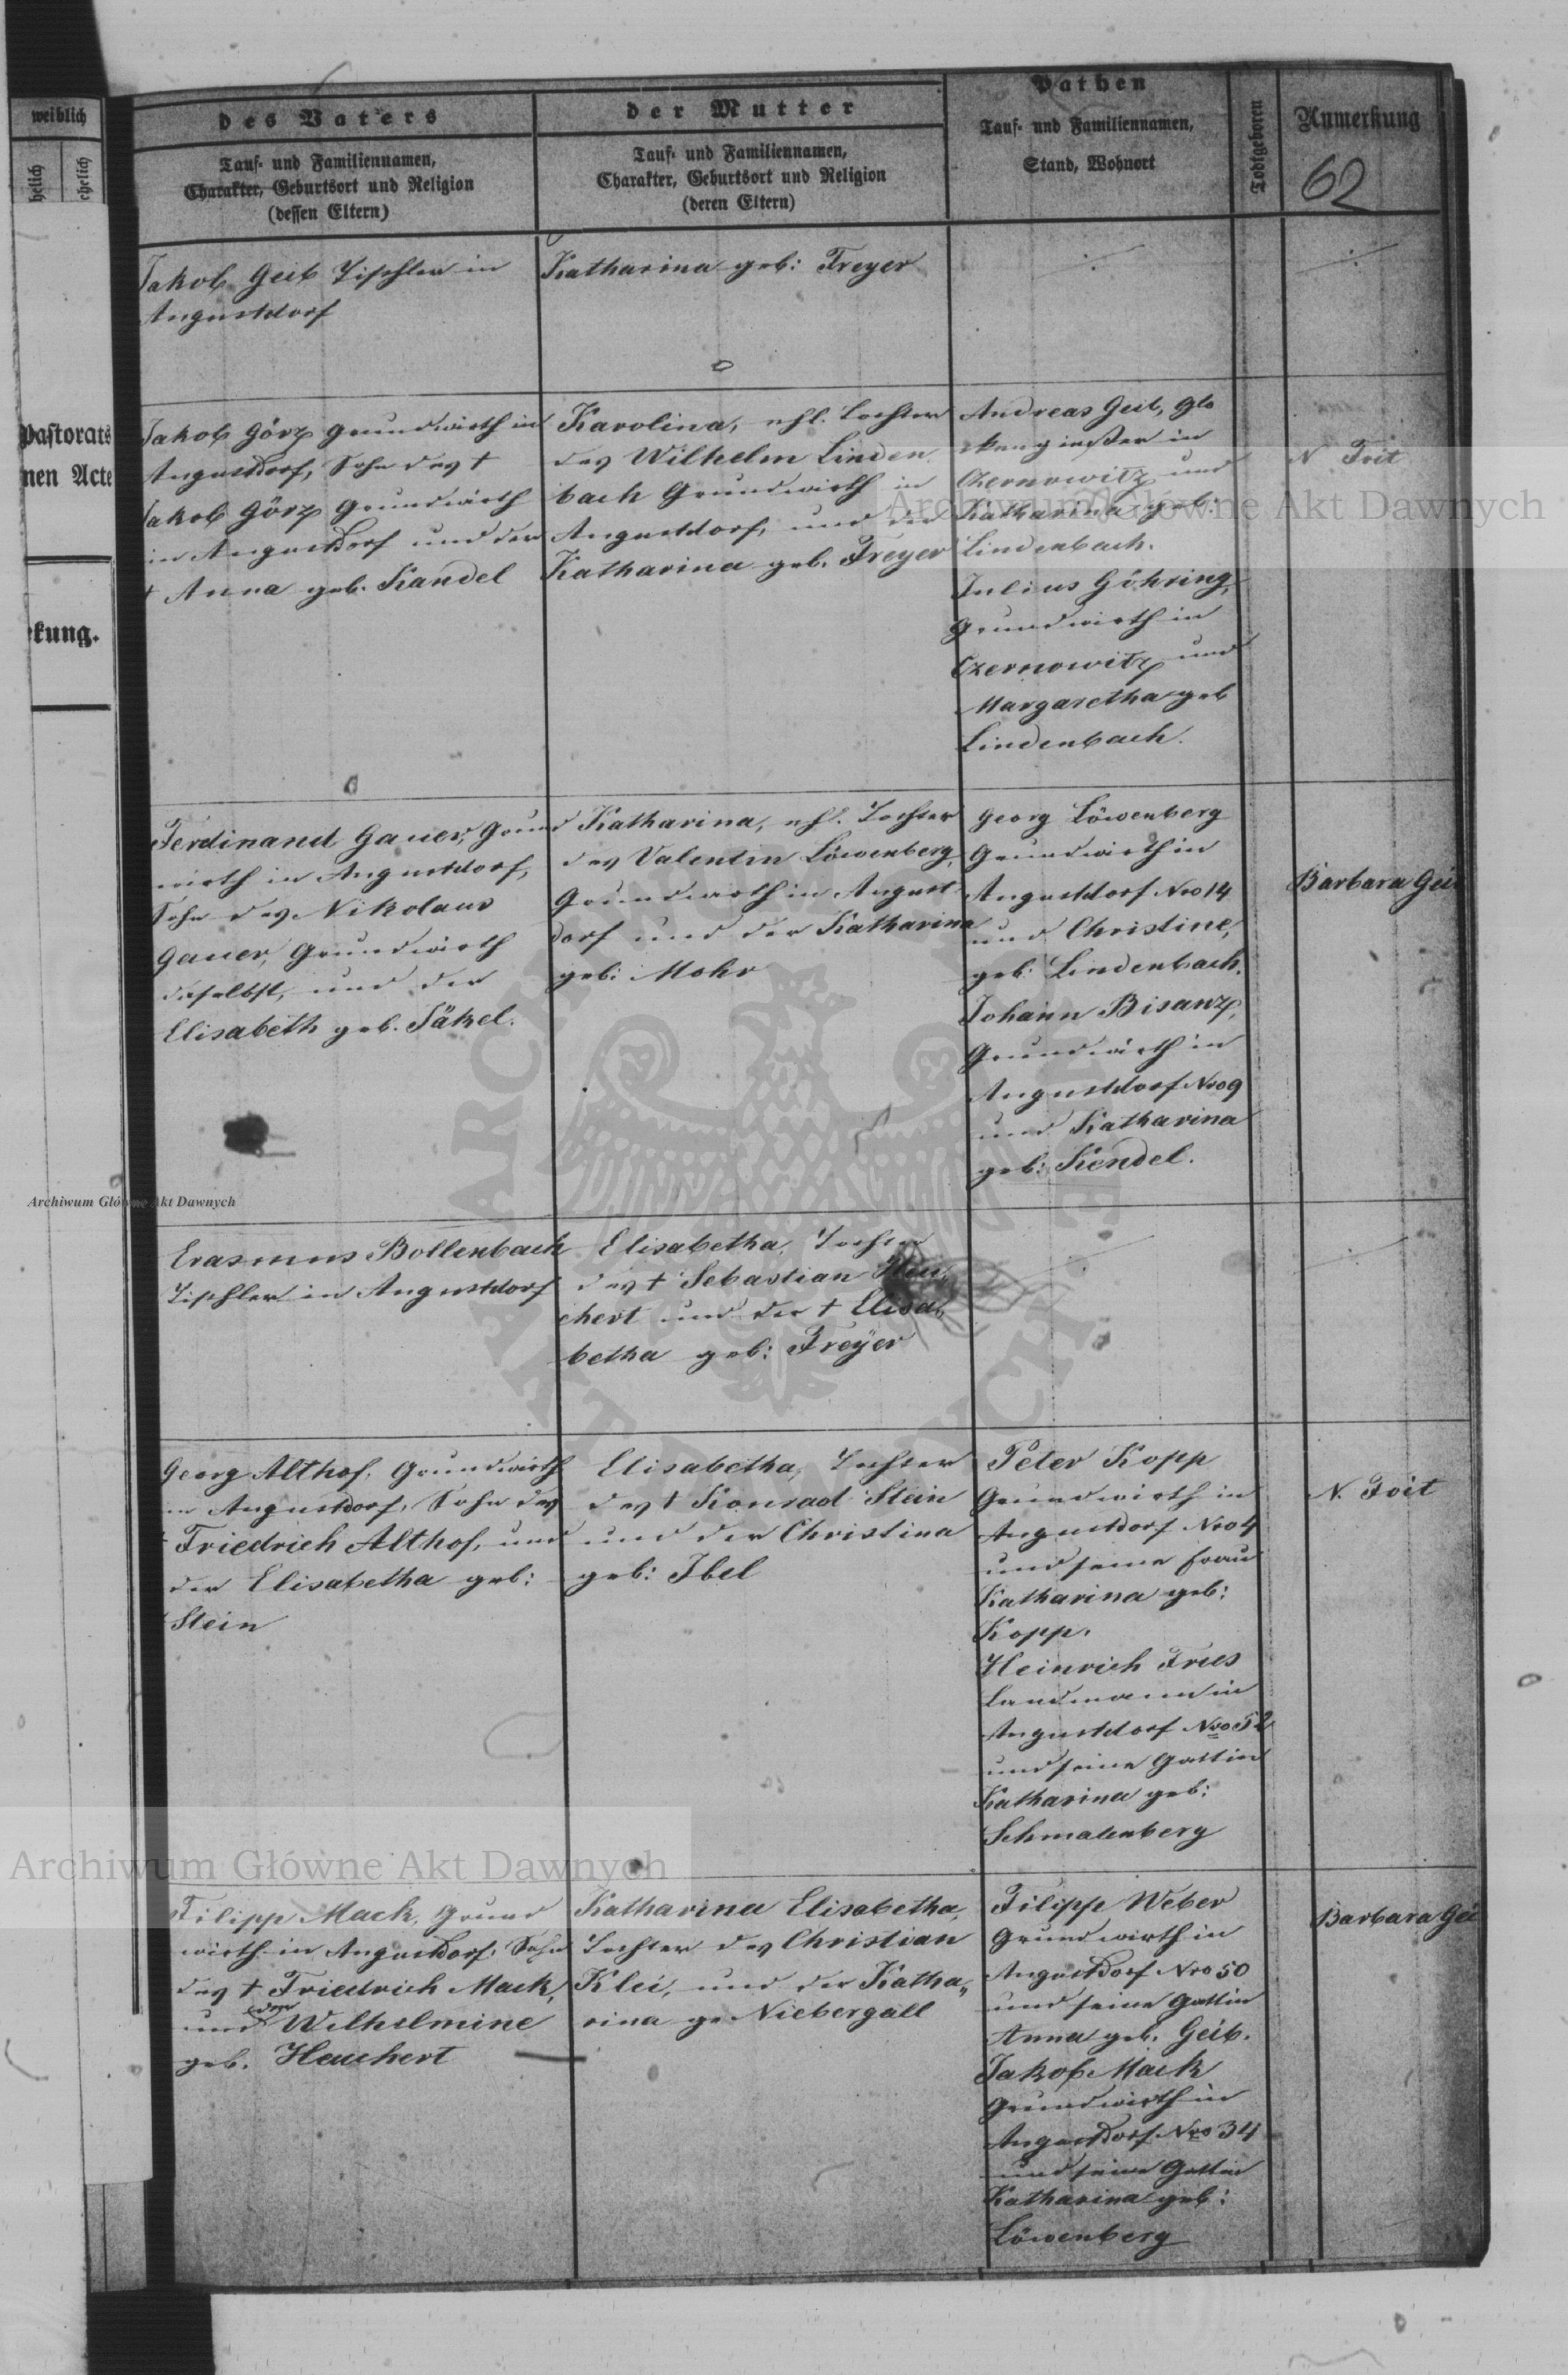 weiblich
ehelich
Pastorats
nen Acte
kung.
des Vaters
Tauf- und Familiennamen,
Charakter, Geburtsort und Religion
(dessen Eltern)
der Mutter
Tauf- und Familiennamen,
Charakter, Geburtsort und Religion
(deren Eltern)
Pathen
Tauf- und Familiennamen,
Stand, Wohnort
Todtgeboren
Anmerkung
62
Jakob Geib Tischler in
Augustdorf
Katharina geb: Freyer
Jakob Görz Grundwirth in
Augustdorf, Sohn des †
Jakob Görz Grundwirth
in Augustdorf und der
† Anna geb. Kandel
Karolina, ehl. Tochter
des Wilhelm Linden
bach Grundwirth in
Augustdorf, und der
Katharina geb. Freyer
Andreas Geib, Glo
ckengießer in
Czernowitz und
Katharina geb:
Lindenbach.
Julius Göhring,
Grundwirth in
Czernowitz und
Margaretha geb
Lindenbach.
N Toit
Ferdinand Gauer, Grund
wirth in Augustdorf,
Sohn des Nikolaus
Gauer, Grundwirth
daselbst, und der
Elisabeth geb. Jäkel.
Katharina, ehl. Tochter
des Valentin Löwenberg,
Grundwirth in August
dorf und der Katharina
geb: Mohr
Georg Löwenberg
Grundwirth in
Augustdorf Nro 14
und Christine,
geb: Lindenbach.
Johann Bisanz,
Grundwirth in
Augustdorf Nro 9
und Katharina
geb: Kendel.
Barbara Gei
Erasmus Bollenbach
Tischler in Augustdorf
Elisabetha, Tochter
des † Sebastian Heu,
chert und der † Elisa,
betha geb: Freyer
Georg Althof, Grundwirth
in Augustdorf, Sohn des
† Friedrich Althof, und
der Elisabetha geb:
Stein
Elisabetha, Tochter
des † Konrad Stein
und der Christina
geb: Ibel
Peter Kopp
Grundwirth in
Augustdorf Nro 4
und seine Frau
Katharina geb:
Kopp.
Heinrich Fries
Landmann in
Augustdorf Nro 52
und seine Gattin
Katharina geb:
Schmalenberg
N. Toit
Filipp Mack, Grund
wirth in Augustdorf, Sohn
des † Friedrich Mack,
und der Wilhelmine
geb. Heuchert
Katharina Elisabetha,
Tochter des Christian
Klei, und der Katha„
rina ge Niebergall
Filipp Weber
Grundwirth in
Augustdorf Nro 50
und seine Gattin
Anna geb. Geib.
Jakob Mack
Grundwirth in
Augustdorf Nro 34
und seine Gattin
Katharina geb:
Löwenberg
Barbara Gei
Archiwum Główne Akt Dawnych
Archiwum Główne Akt Dawnych
Archiwum Główne Akt Dawnych